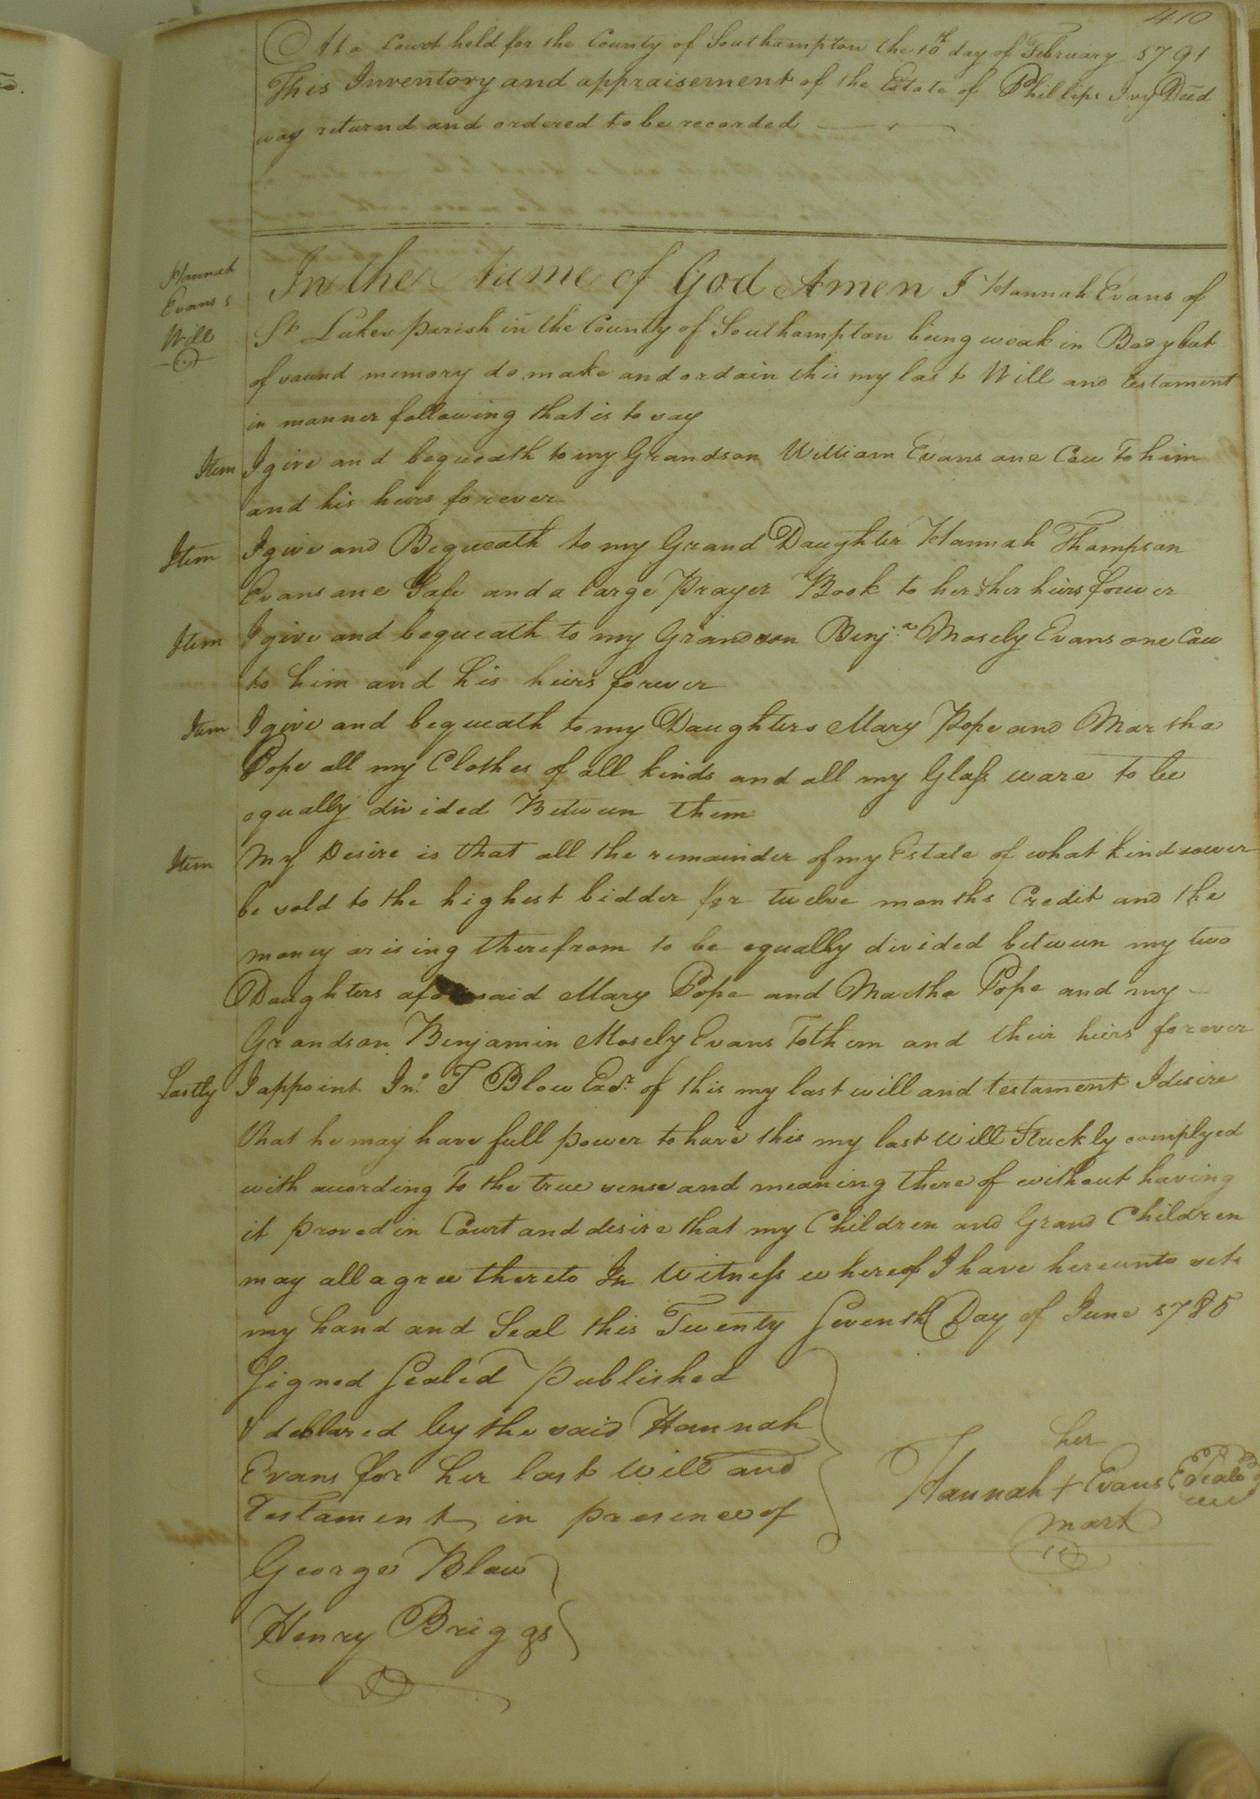 410
At a Court held for the County of Southampton the 10th day of February 1791
This Inventory and appraisement of the Estate of Phillips Ivy Decd
way returnd and ordered to be recorded
Hannah
Evans's
Will
In the Name of God Amen I Hannah Evans of
St Lukes parish in the County of Southampton being weak in Body but
of sound memory do make and ordain this my last Will and testament
in manner following that is to say
Item I give and bequeath to my Grandson William Evans one Cow to him
and his heirs forever
Item I give and Bequeath to my Grand Daughter Hannah Thompson
Evans one Safe and a large Prayer Book to her & her heirs forever
Item I give and bequeath to my Grandson Benj.a Mosely Evans one Cow
to him and his heirs forever
Item I give and bequeath to my Daughters Mary Pope and Martha
Pope all my Clothes of all kinds and all my Glass ware to be
equally divided Between them
Item My Desire is that all the remainder of my Estate of what kind soever
be sold to the highest bidder for twelve months Credit and the
money arising therefrom to be equally divided between my two
Daughters aforesaid Mary Pope and Martha Pope and my
Grandson Benjamin Mosely Evans To them and their heirs forever
Lastly I appoint Jn.o T Blow Exor. of this my last will and testament I desire
that he may have full power to have this my last Will Strickly complyed
with according to the true sense and meaning there of without having
it proved in Court and desire that my Children and Grand Children
may all agree thereto In Witness whereof I have hereunto set
my hand and Seal this Twenty Seventh Day of June 1785
Signed Sealed published
& declared by the said Hannah
Evans for her last Will and
Testament in presence of
her
Hannah + Evans Seal
mark
George Blow
Henry Briggs